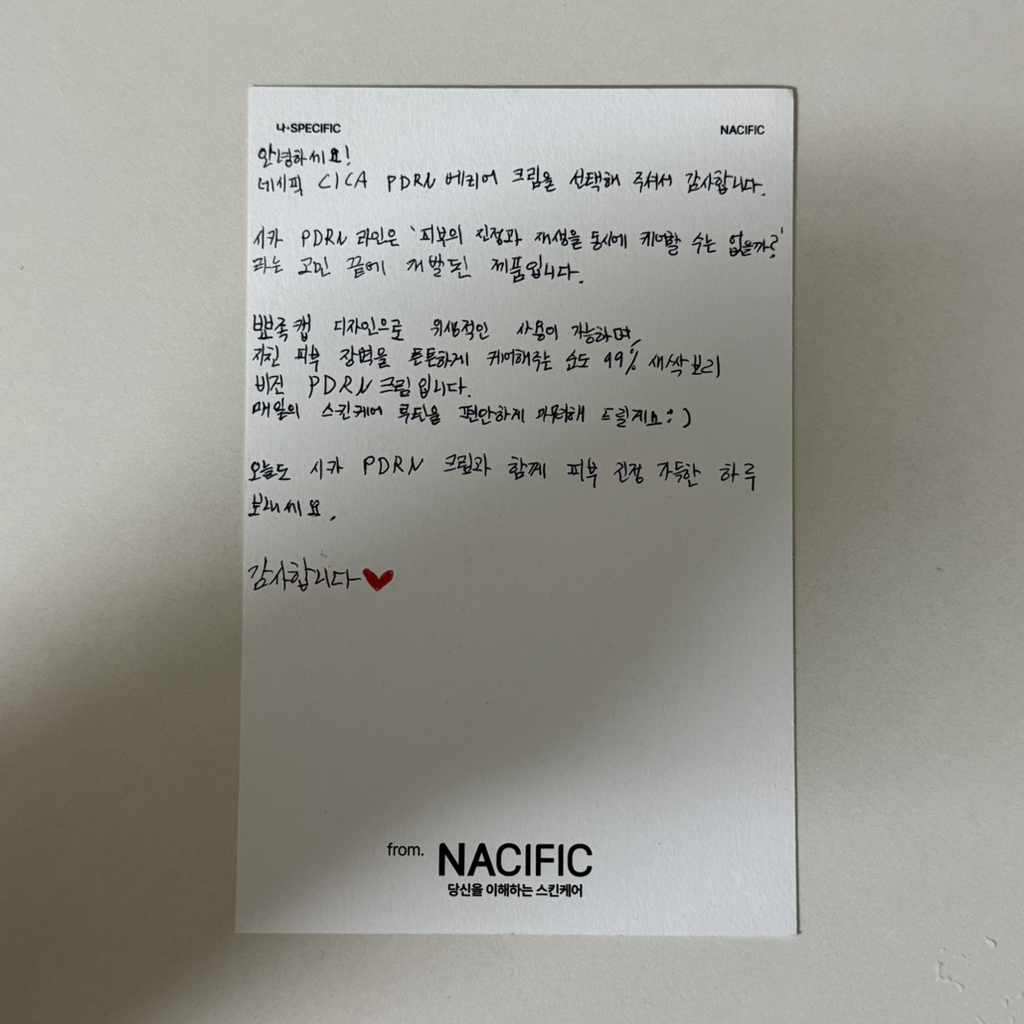 나+SPECIFIC
NACIFIC
안녕하세요!
네시픽 CICA PDRN 베리어 크림을 선택해 주셔서 감사합니다.
시카 PDRN 라인은 '피부의 진정과 재생을 동시에 케어할 수는 없을까?'
라는 고민 끝에 개발된 제품입니다.
뾰족캡 디자인으로 위생적인 사용이 가능하며,
지친 피부 장벽을 튼튼하게 케어해주는 순도 99% 새싹보리
비건 PDRN 크림입니다.
매일의 스킨케어 루틴을 편안하게 마무리해 드릴게요:)
오늘도 시카 PDRN 크림과 함께 피부 진정 가득한 하루
보내세요.
감사합니다♥
from. NACIFIC
당신을 이해하는 스킨케어